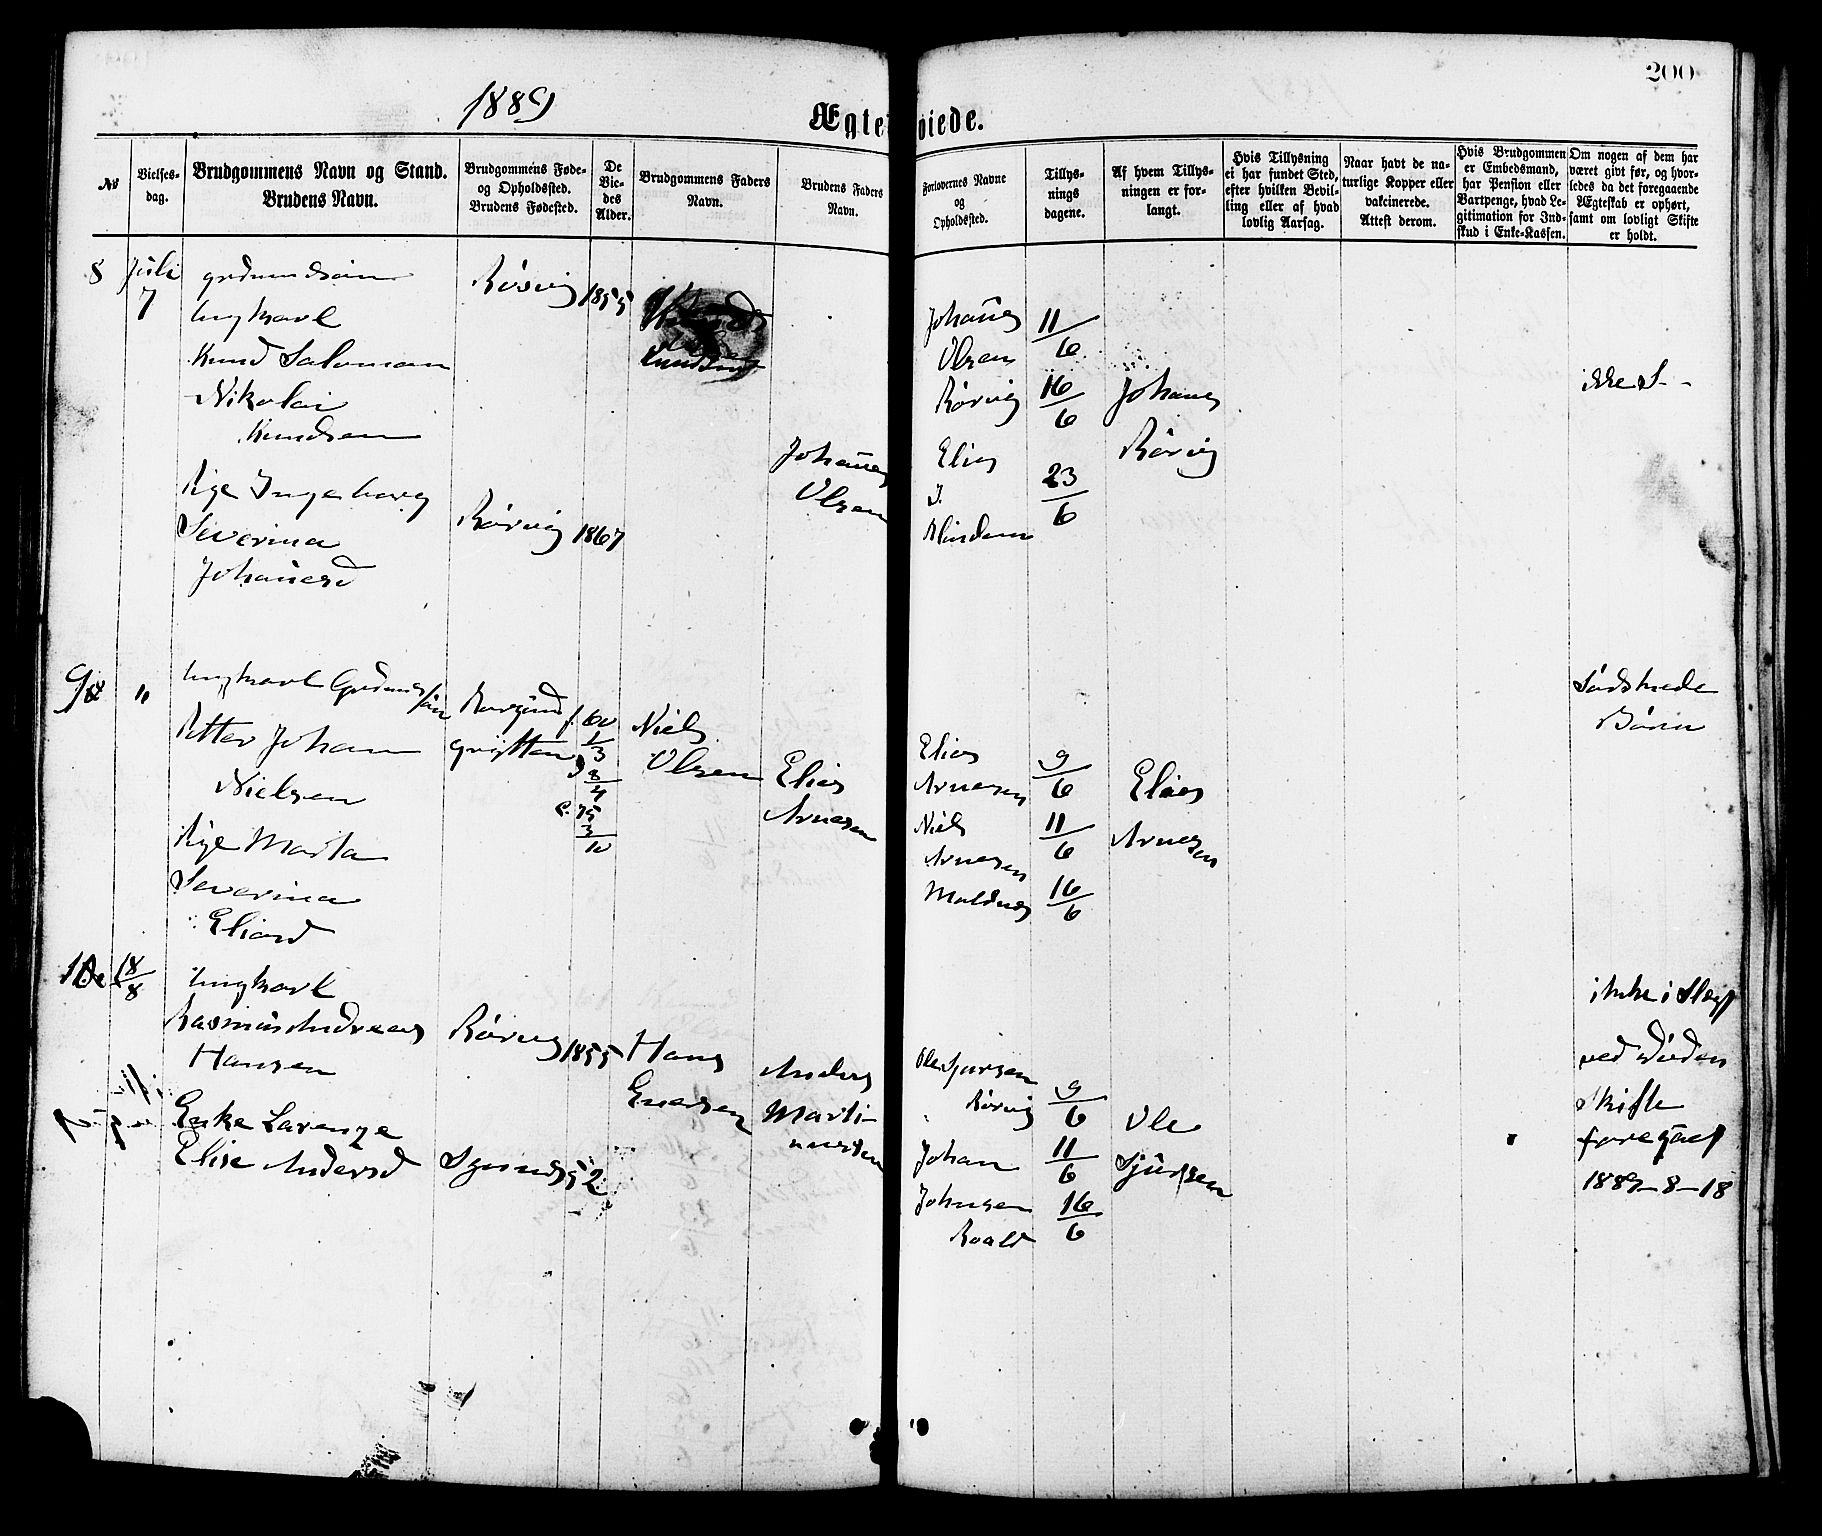 200
1889
Ægtev
viede.
№
Vielses-
dag.
Brudgommens Navn og Stand.
Brudens Navn.
Brudgommens Føde-
og Opholdssted.
Brudens Fødested.
De
Vie-
des
Alder.
Brudgommens Faders
Navn.
Brudens Faders
Navn.
Forlovernes Navne
og
Opholdssted.
Tillys-
nings
dagene.
Af hvem Tillys-
ningen er for-
langt.
Hvis Tillysning
ei har fundet Sted,
efter hvilken Bevil-
ling eller af hvad
lovlig Aarsag.
Naar havt de na-
turlige Kopper eller
vakcinerede.
Attest derom.
Hvis Brudgommen
er Embedsmand,
har Pension eller
Vartpenge, hvad Le-
gitimation for Ind-
skud i Enke-Kassen.
Om nogen af dem har
været givt før, og hvor-
ledes da det foregaaende
Ægteskab er ophørt,
samt om lovligt Skifte
er holdt.
8
Juli
7
Ungkarl
Knud Salomon
Nikolai
Knudsen
Pige Ingeborg
Severina
Johannesd
Rørvig
1855
Rørvig
1867
Knudsen
Johannes
Olsen
Johannes
Olsen
Rørvig
Elias
Blindem
11/6
16/6
23/6
Johannes
Rørvig
ikke S--
9
"
Ungkarl
Petter Johan
Nielsen
Pige Marta
Severina
Eliasd
Borgund
f. 60
1/3
8/4
75
3/10
Niels
Olsen
Elias
Arnesen
Elias
Arnesen
Niels
Arnesen
Moldnes
9/6
11/6
16/6
Elias
Arnesen
Sødskende
Børn
10
18/8
Ungkarl
Rasmus Andreas
Hansen
Enke Larenze
Elise Andersd
Rørvig
1855
52
Hans
Anders
Marti-
nussen
Ole Sjursen
Rørvig
Johan
Johnsen
Roald
9/6
11/6
16/6
Ole
Sjursen
ikke i Slegt
ved Døden
Skifte
foregaaet
1889-8-18